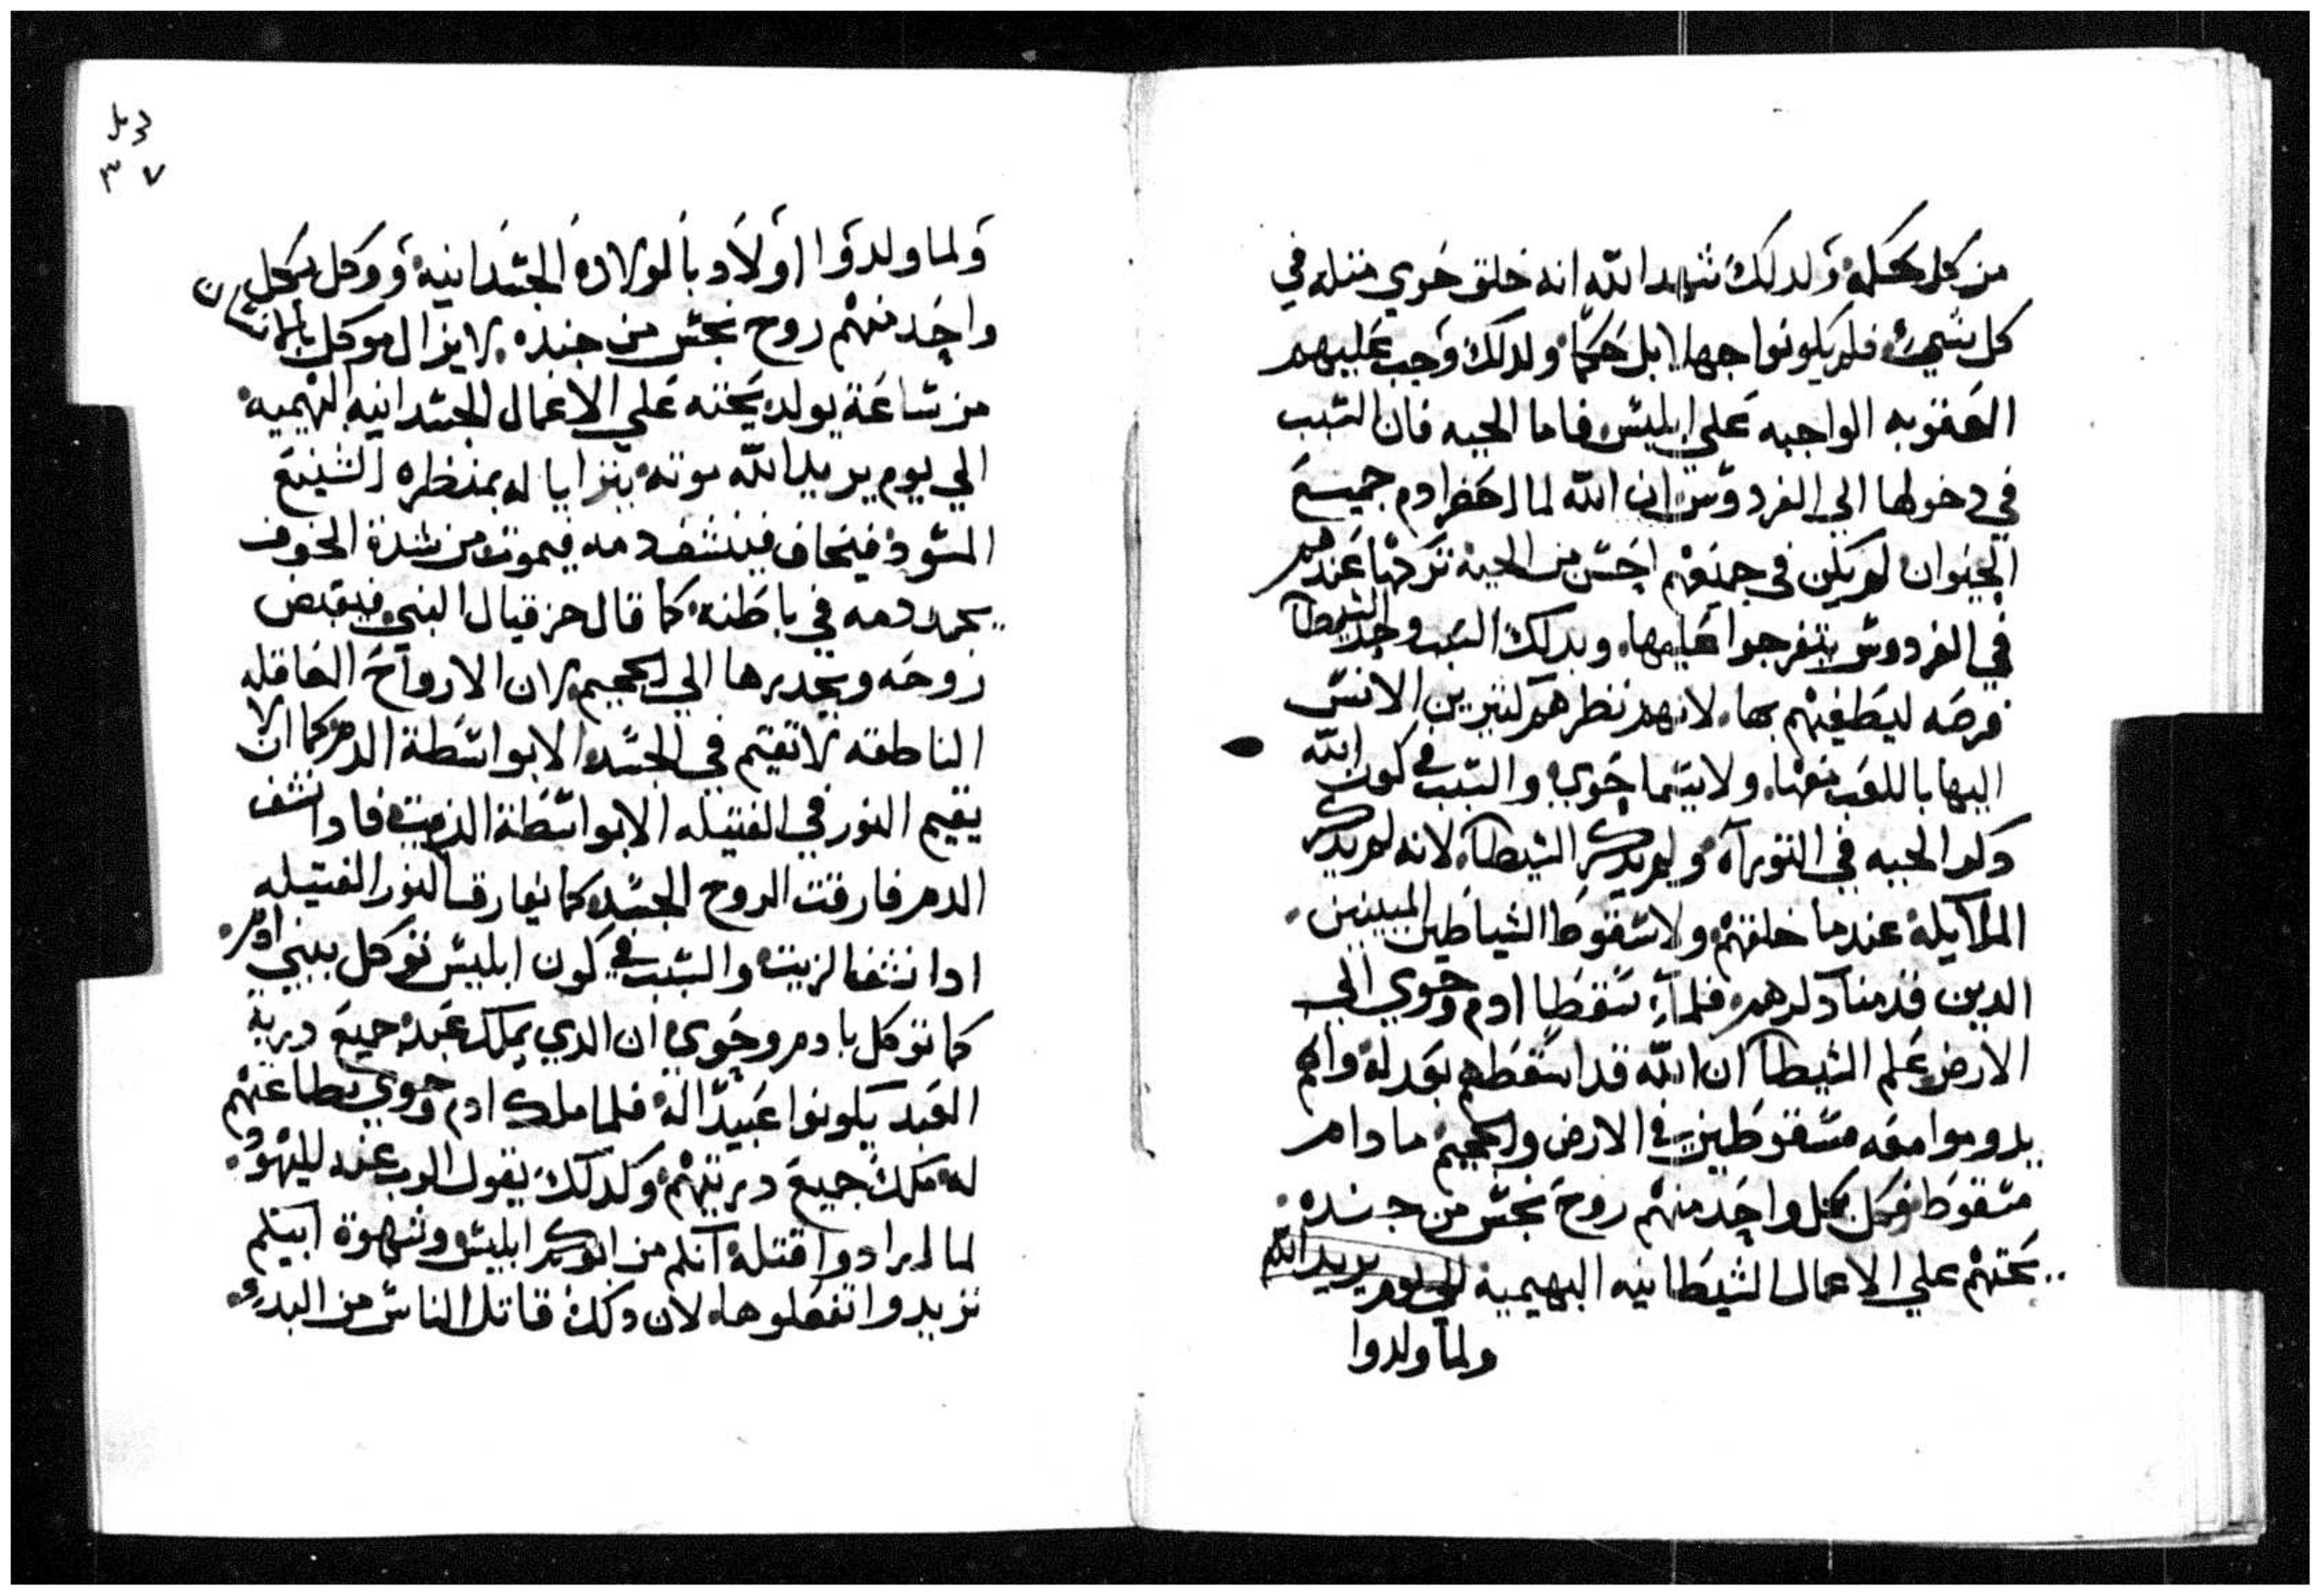 من كل بحكمة ولدلك شهد الله انه خلق حوي مثله في
كل شيء فلم يكونوا جهلا بل حكما ولدلك وجب عليهم
العقوبه الواجبه علي ابليس فاما الحيه فان السبب
في دخولها الي الفردوس ان الله لما احضر ادم جميع
الحيوان لم يكن في جميعهم احسن من الحية تركها عندهم
في الفردوس يتفرجوا عليها وبدلك السبب وجد الشيطان
فرصه ليطغيهم بها لانهم نظرهم
اليها باللعب معها ولاسيما حوي والسبب في كون الله
دكر الحيه في التوراه ولم يدكر الشيطان لانه لم يدكر
الملايكة عندما خلقهم ولا سقوط الشياطين
الدين قدمنا دكرهم فلما سقطا ادم وحوي الي
الارض علم الشيطان ان الله قد اسقطهم بعدله وانهم
يدوموا معه مسقوطين في الارض والجحيم ما دام
مسقوط فوكل بكل واحد منهم روح نجس من جنده
يحتهم علي الاعمال الشيطانيه البهيمية الي يوم يريد الله
ولما ولدوا
دمل
٣٧
ولما ولدوا اولاد بالولادة الجسدانية ووكل بكل
واحد منهم روح نجس من جنده لا يزال موكل بالانسان
من ساعة يولد يحته علي الاعمال الجسدانيه البهيميه
الي يوم يريد الله موته يترايا له بمنظره الشنيع
السود فيخاف فينشف دمه فيموت من شدة الخوف
يجمد دمه في باطنه كما قال حزقيال النبي فيقبض
روحه ويحدرها الي الجحيم لان الارواح العاقله
الناطقه لا تقيم في الجسد الا بواسطة الدم كما ان لا
يقيم النور في الفتيله الا بواسطة الزيت فادا نشف
الدم فارقت الروح الجسد كما يفارق النور الفتيله
ادا نشف الزيت والسبب في كون ابليس توكل ببني ادم
كما توكل بادم وحوي ان الدي يملك عبد جميع درية
العبد يكونوا عبيدا له فلما ملك ادم وحوي بطاعتهم
له ملك جميع دريتهم وكدلك يقول الرب عنه لليهود
لما ارادوا قتله انتم من ابوكم ابليس وشهوة ابيكم
تريدوا تفعلوها لان دلك قاتل الناس من البدو